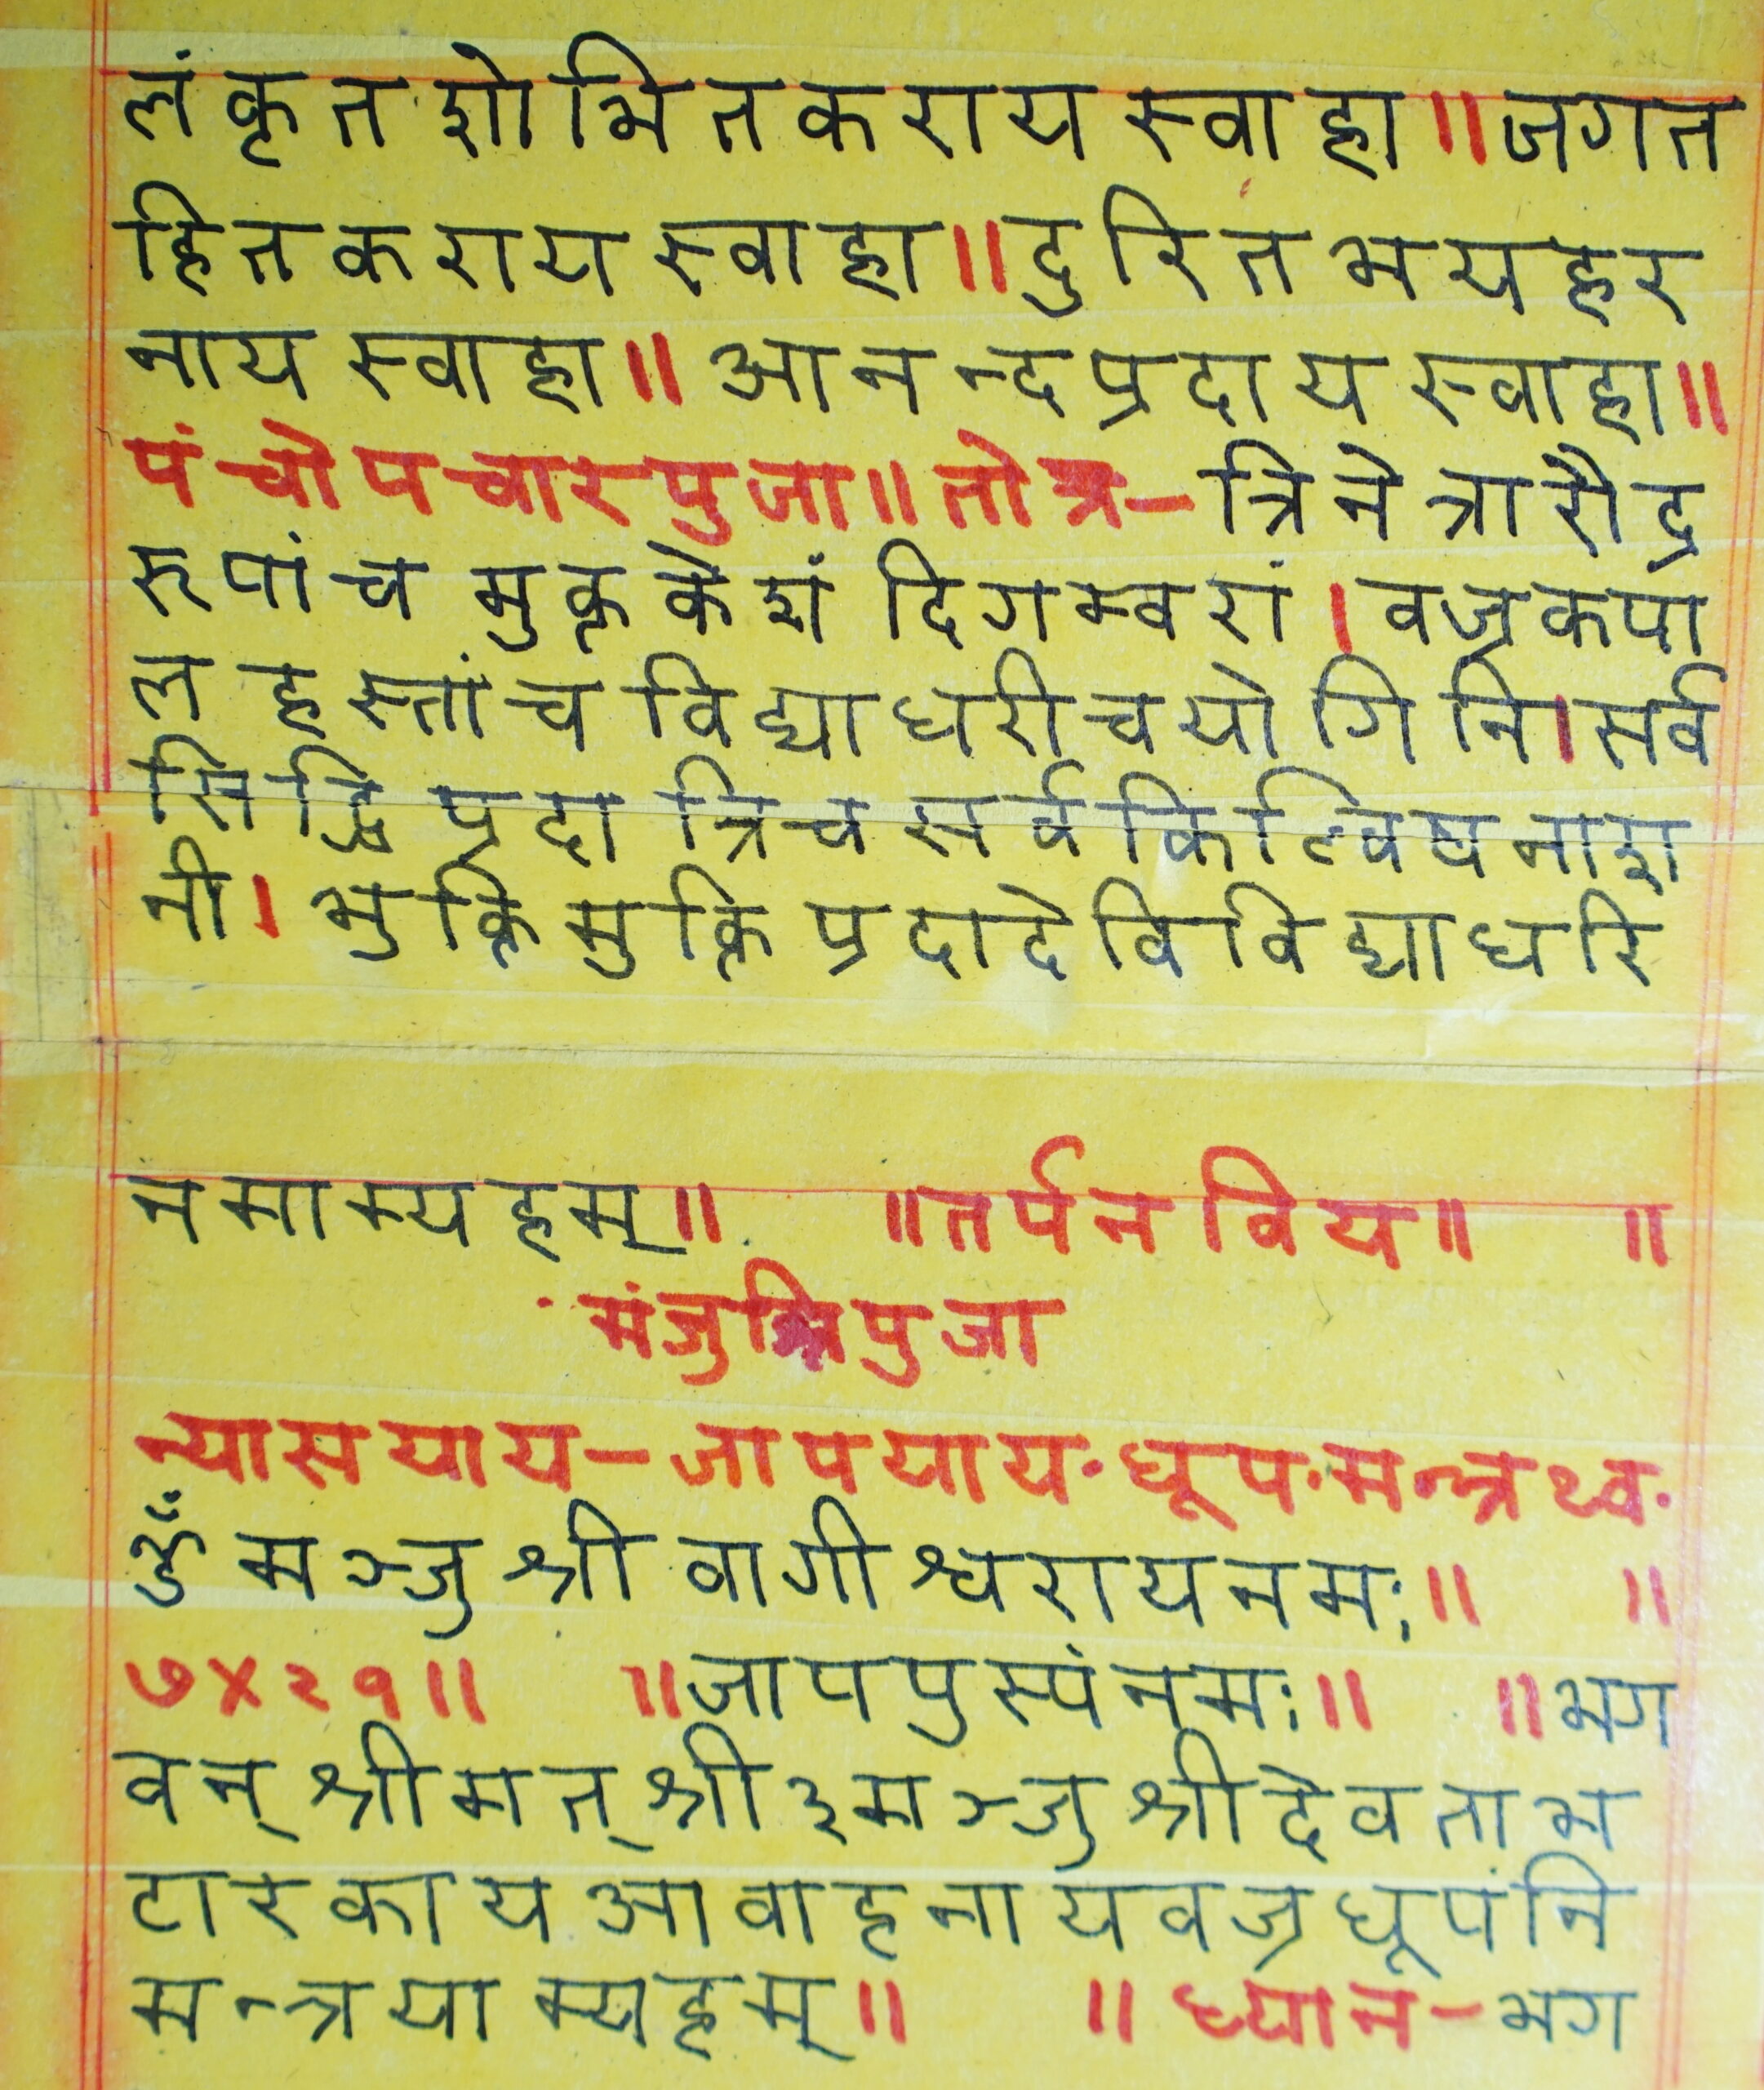 लंकृतशोभितकराय स्वाहा॥जगत
हितकराय स्वाहा॥दुरितभयहर
नाय स्वाहा॥ आनन्दप्रदाय स्वाहा॥
पंचोपचारपुजा॥तोत्र-त्रिनेत्रारौद्र
रुपांच मुक्तकेशं दिगम्वरां।वज्रकपा
लहस्तांच विद्याधरीचयोगिनि।सर्व
सिद्धिप्रदात्रिच सर्वकिल्विषनाश
नी। भुक्तिमुक्तिप्रदादेविविद्याधरि
नमाम्यहम्॥ ॥तर्पनविय॥ ॥
मंजुश्रिपुजा
न्यासयाय-जापयाय·धूप·मन्त्रथ्व·
ॐ मञ्जुश्रीवागीश्वरायनमः॥ ॥
७×२१॥ ॥जापपुस्पंनमः॥ ॥भग
वन् श्रीमत्श्री३मञ्जुश्रीदेवताभ
टारकाय आवाहनायवज्रधूपंनि
मन्त्रयाम्यहम्॥ ॥ध्यान-भग